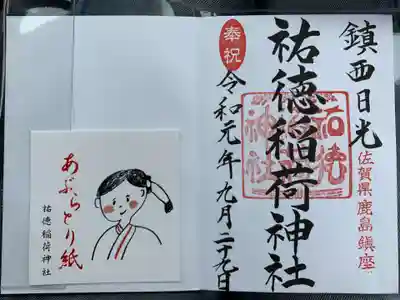 鎮西日光
佐賀県鹿島鎮座
祐徳稲荷神社
祐徳
神社
奉祝
令和元年九月二十九日
あぶらとり紙
祐徳稲荷神社